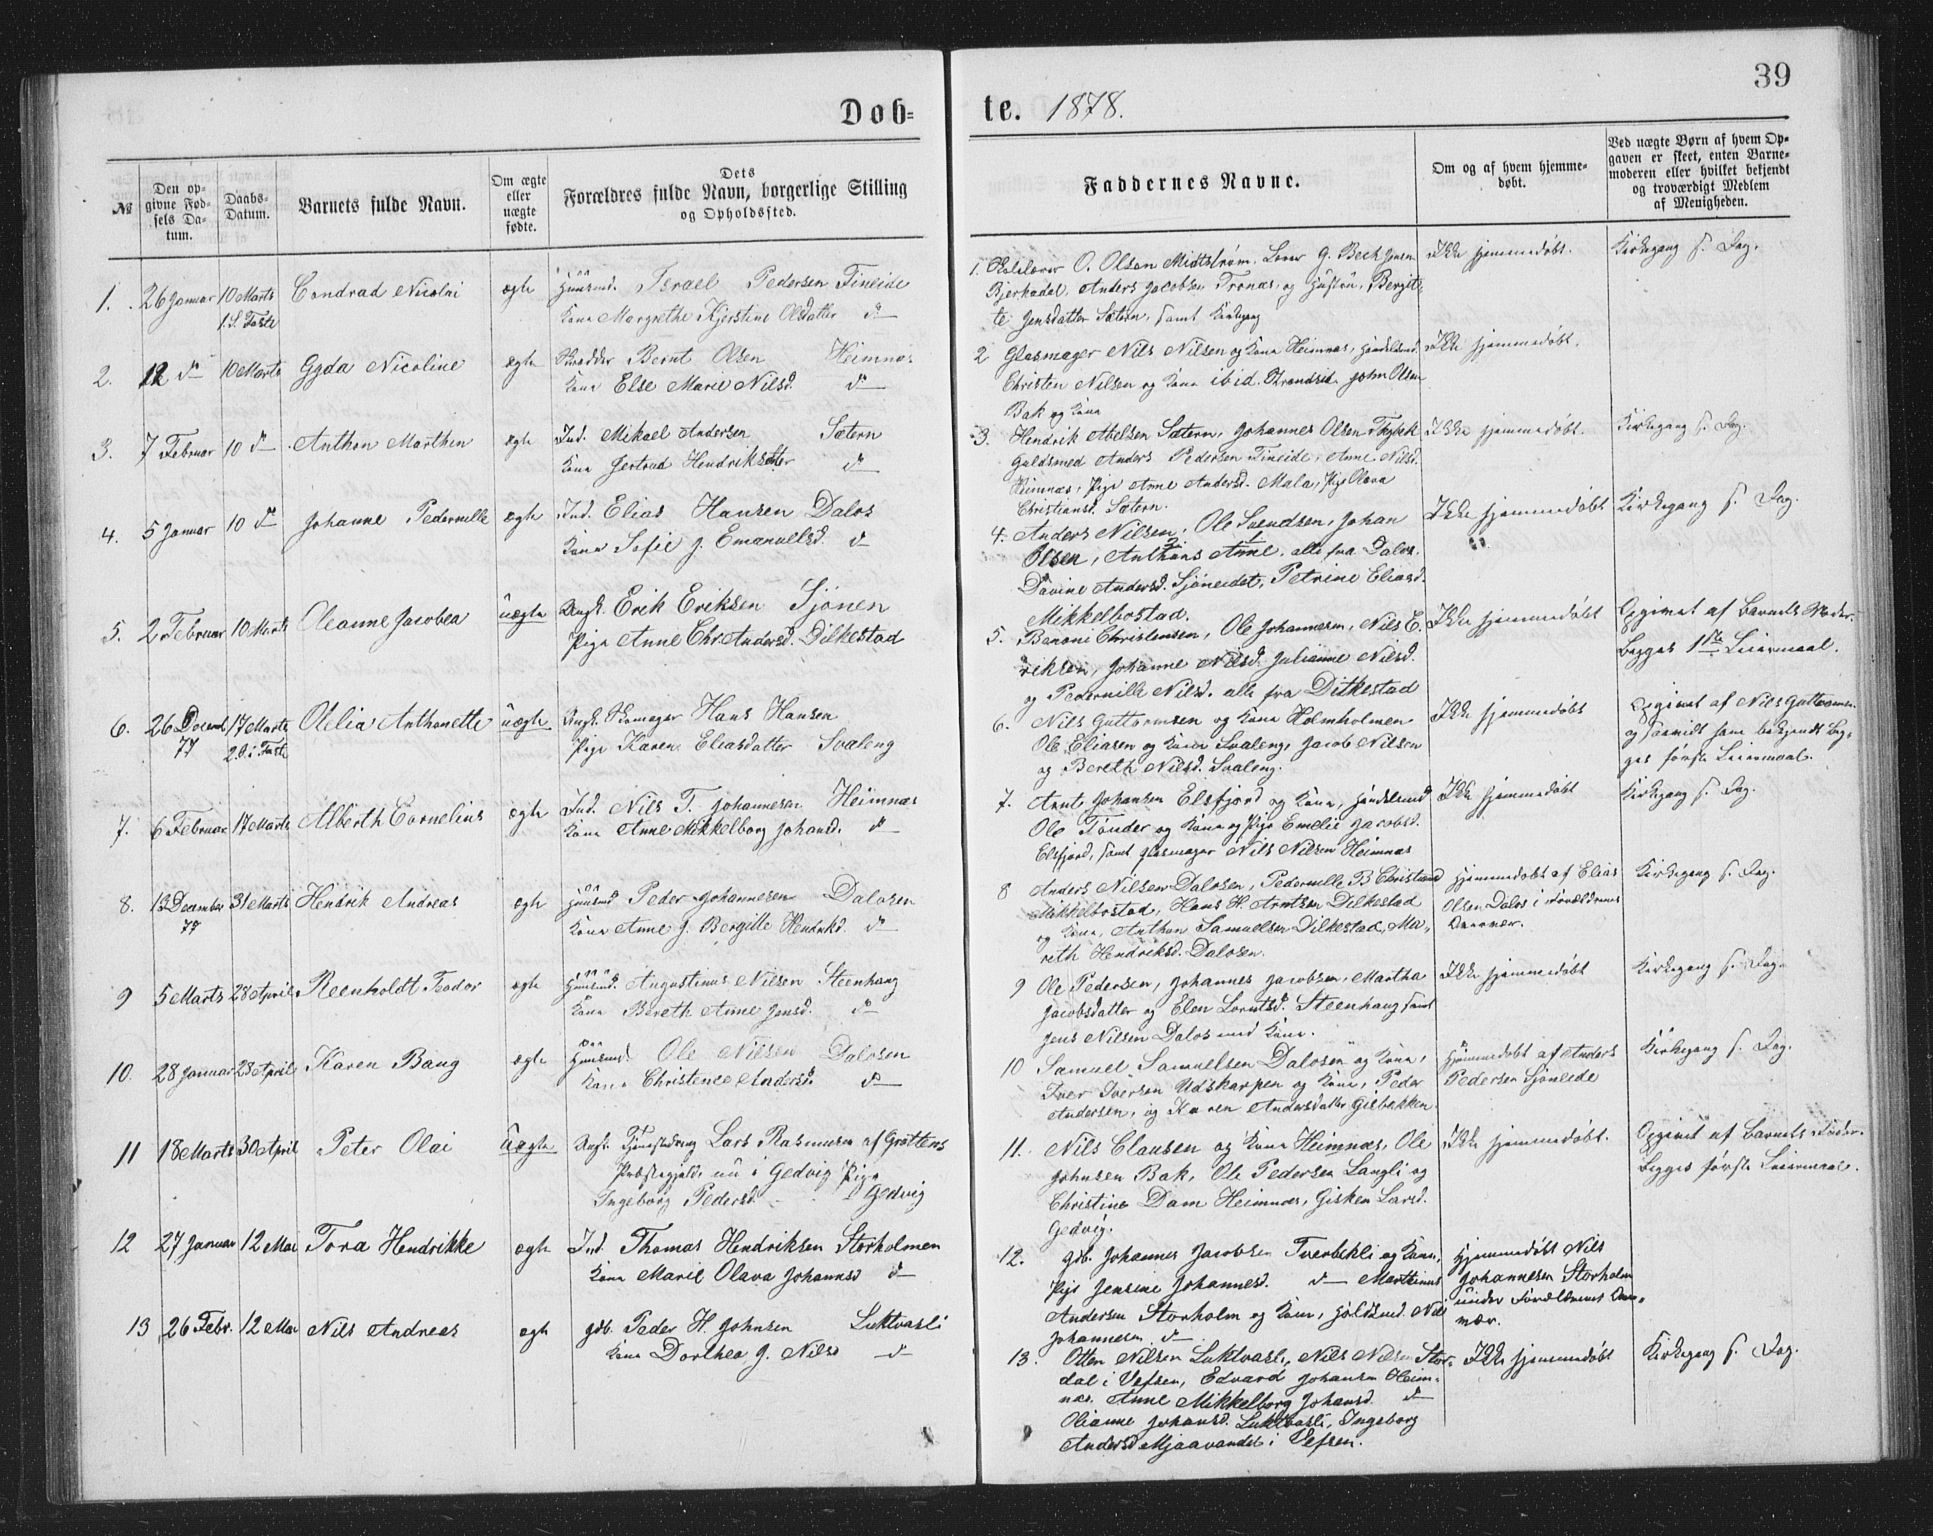 39
Døb= te. 1878.
№
Den op-
givne Fød-
sels Da-
tum.
Daabs-
Datum.
Barnets fulde Navn.
Om ægte
eller
uægte
fødte.
Dets
Forældres fulde Navn, borgerlige Stilling
og Opholdssted.
Faddernes Navne.
Om og af hvem hjemme-
døbt.
Ved uægte Børn af hvem Op-
gaven er skeet, enten Barne-
moderen eller hvilket bekjendt
og troværdigt Medlem
af Menigheden.
1. 26 Januar 10 Marts Condrad Nicolai ægte Huusmd. Israel Pedersen Fineide
1. S. Faste Kone Margrethe Kjerstine Olsdatter d—
1. O. Olsen Midtstrøm. G. Beck Jensen
Bjerkadal, Anders Jacobsen Tronæs, og Hustru, Bergit-
te Jensdatter Sætern, samt
Ikke hjemmedøbt.
Kirkegang s. Dag.
2. 12 d— 10 Marts Gyda Nicoline ægte Skrædder Bernt Olsen Heimnæs
Kone Else Marie Nilsd. d—
2 Glasmager Nils Nilsen og Kone Heimnæs, Handelsmd.
Christen Nilsen og Kone ibid. Strandsid. John Olsen
Bak og Kone
Ikke hjemmedøbt.
3. 7 Februar 10 d— Anthon Marthin ægte Ind. Mikael Andersen Sætern
Kone Gertrud Hendriksdtter d—
3. Hendrik Abelsen Sætern, Johannes Olsen
Guldsmed Anders Pedersen Fineide, Anne Nilsd.
Heimnæs, Pige Anne Andersd. Mala, Pige Olava
Christiansd. Sætern.
Ikke hjemmedøbt.
Kirkegang s. Dag.
4. 5 Januar 10 d— Johanne Pedernille ægte Ind. Elias Hansen Dalos
Kone Sofie J. Emanuelsd. d—
4. Anders Nilsen, Ole Svendsen, Johan
Olsen, Anthons Anne, alle fra Dalos.
Davine Andersd. Sjoneidet, Petrine Eliasd.
Mikkelbostad.
Ikke hjemmedøbt
Kirkegang s. Dag.
5. 2 Februar 10 Marts Oleanne Jacobea uægte Ungk. Erik Eriksen Sjonen
Pige Anne Chr Andersd. Dilkestad
5. Benoni Christensen, Ole Johannesen, Nils E.
riksen, Johanne Nilsd. Julianne Nilsd.
og Pedernille Nilsd. alle fra Dilkestad
Ikke hjemmedøbt
Opgivet af Barnets Moder.
Begges 1ste Leiermaal.
6. 26 Decmb. 17 Marts Olelia Anthonette uægte Ungk. Skomager Hans Hansen
77 2. S. i Faste Pige Karen Eliasdatter Svaleng
6. Nils Guttormsen og Kone Holmholmen
Ole Eliasen og Kone Svaleng, Jacob Nilsen
og Bereth Nilsd. Svaleng.
Ikke hjemmedøbt
Opgivet af Nils Guttormsen
og forøvrigt som bekjendt Beg-
ges første Leiermaal.
7. 6 Februar 17 Marts Alberth Cornelius ægte Ind. Nils T. Johannesen Heimnæs
Kone Anne Mikkelborg Johansd. d—
7. Arnt Johansen Elsfjord og Kone, Handelsmd
Ole Tønder og Kone og Pige Emelie Jacobsd.
Elsfjord, samt Glasmager Nils Nilsen Heimnæs
Ikke hjemmedøbt
Kirkegang s. Dag.
8. 13 December 31 Marts Hendrik Andreas ægte Huusmd. Peder Johannesen Dalosen
77 Kone Anne J. Bergitte Hendrikd. d—
8 Anders Nilsen Dalosen, Pedernille B Christiansd
Mikkelbostad, Hans H. Arntsen Dilkestad
og Kone, Anthon Samuelsen Dilkestad, Ma-
reth Hendriksd. Dalosen.
Hjemmedøbt af Elias
Olsen Dalos i Forældrenes
Overvær.
Kirkegang s. Dag.
9 5 Marts 28 April Reenholdt Teodor ægte Huusmd. Augustinus Nilsen Steenhaug
Kone Bereth Anne Jensd. d—
9 Ole Pedersen, Johannes Jacobsen, Martha
Jacobsdatter og Elen Lorntsd. Steenhaug samt
Jens Nilsen Dalos med Kone.
Ikke hjemmedøbt
Kirkegang s. Dag.
10. 28 Januar 28 April Karen Bang ægte Huusmd. Ole Nilsen Dalosen
Kone Christence Andersd. d—
10 Samuel Samuelsen Dalosen og Kone,
Iver Iversen Udskarpen og Kone, Peder
Andersen, og Karen Andersdatter Gisbakken.
Hjemmedøbt af Anders
Pedersen Sjoneide
Kirkegang s. Dag.
11 18 Marts 30 April Peter Olai Uægte Ungk. Tjenestedreng Lars Rasmusen af Grøttens
Præstegjeld nu i Gedvig Pige
Ingeborg Pedersd. Gedvig
11. Nils Clausen og Kone Heimnæs, Ole
Johnsen Bak, Ole Pedersen Langli og
Christine Dam Heimnæs, Gisken Larsd.
Gedvig.
Ikke hjemmedøbt.
Opgivet af Barnets Fader.
Begges første Leiermaal.
12 27 Januar 12 Mai Tora Hendrikke ægte Ind. Thomas Hendriksen Storholmen
Kone Marie Olava Johannsd d—
12. Gdb. Johannes Jacobsen Tverbekli og Kone,
Pige Jensine Johannesd. d— Marthinus
Andersen Storholm og Kone, Nils
Johannesen d—
Hjemmedøbt Nils
Johannesen Storholm
under Forældrenes Over-
vær.
13 26 Febr. 12 Mai Nils Andreas ægte Gdb. Peder H. Johnsen Luktvasli
Kone Dorthea J. Nilsd d—
13. Otten Nilsen Luktvasli, Nils Nilsen Stor-
dal i Vefsen, Edvard Johansen Heim-
næs. Anne Mikkelborg Johansd. d—
Olianne Johansd. Luktvasli, Ingeborg
Andersd Mjaavandet i Vefsen.
Ikke hjemmedøbt
Kirkegang s. Dag.